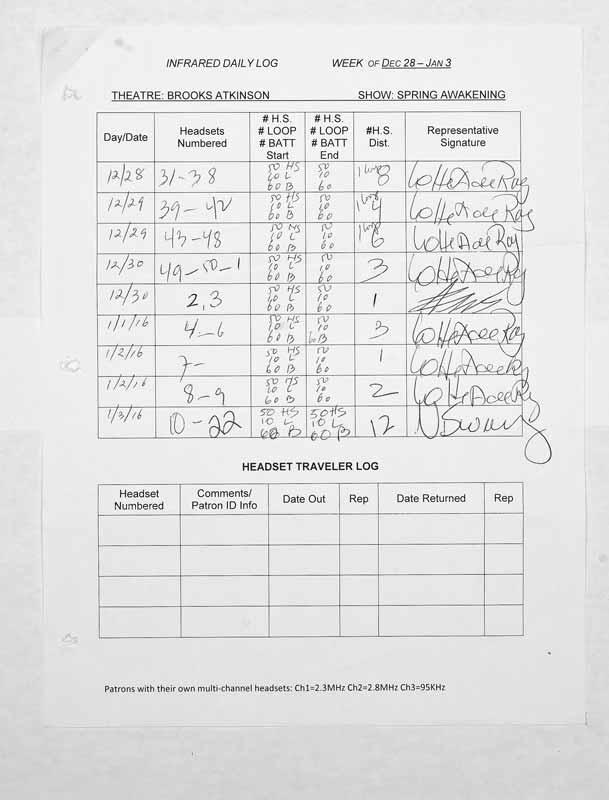 INFRARED DAILY LOG WEEK OF DEC 28 – JAN 3
THEATRE: BROOKS ATKINSON SHOW: SPRING AWAKENING
Day/Date Headsets Numbered # H.S. # LOOP # BATT Start # H.S. # LOOP # BATT End #H.S. Dist. Representative Signature
12/28 31-38 50 HS 10 L 60 B 50 10 60 1 loop 8
12/29 39-42 50 HS 10 L 60 B 50 10 60 1 loop 4
12/29 43-48 50 HS 10 L 60 B 50 10 60 1 loop 6
12/30 49-50-1 50 HS 10 L 60 B 50 10 60 3
12/30 2,3 50 HS 10 L 60 B 50 10 60 1
1/1/16 4-6 50 HS 10 L 60 B 50 10 60 B 3
1/2/16 7- 50 HS 10 L 60 B 50 10 60 1
1/2/16 8-9 50 HS 10 L 60 B 50 10 60 2
1/3/16 10-22 50 HS 10 L 60 B 50 HS 10 L 60 B 12
HEADSET TRAVELER LOG
Headset Numbered Comments/ Patron ID Info Date Out Rep Date Returned Rep
Patrons with their own multi-channel headsets: Ch1=2.3MHz Ch2=2.8MHz Ch3=95KHz